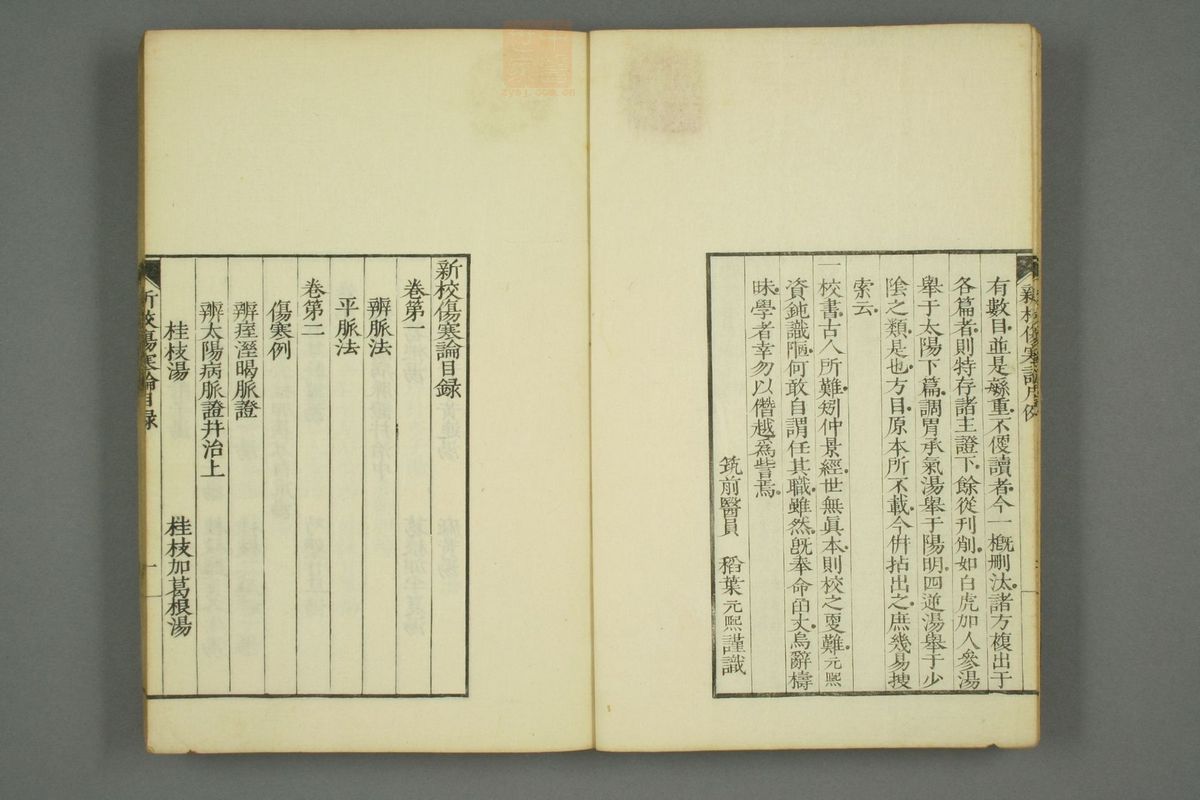 新校傷寒論凡例
有數目並是繇重不便讀者今一槪刪汰諸方複出于
各篇者則特存諸主證下餘從刊削如白虎加人參湯
舉于太陽下篇調胃承氣湯舉于陽明四逆湯舉于少
陰之類是也方目原本所不載今倂拈出之庶幾易搜
索云
一校書古人所難矧仲景經世無眞本則校之更難元熙
資鈍識陋何敢自謂任其職雖然旣奉命函丈烏辭檮
昧學者幸勿以僭越爲訾焉
筑前醫員 稻葉元熙謹識
新校傷寒論目録
卷第一
辨脈法
平脈法
卷第二
傷寒例
辨痓溼暍脈證
辨太陽病脈證幷治上
桂枝湯 桂枝加葛根湯
新校傷寒論目録 一
zysj.com.cn